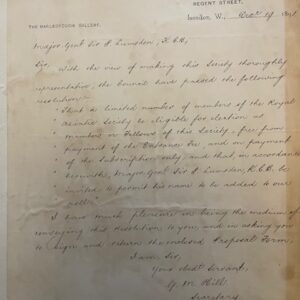 THE MARLBOROUGH GALLERY,
REGENT STREET,
London, W., Decr. 19
Major Genl Sir P. Lumsden, K.C.B.,
Sir,
With the view of making this Society thoroughly
representative, the Council have passed the following
resolution:—
"That a limited number of members of the Royal
" Asiatic Society be eligible for election as
" members or Fellows of this Society, free from
" payment of the Entrance Fee, and on payment
" of the Subscription only; and that, in accordance
" herewith, Major Genl Sir P. Lumsden, K.C.B. be
" invited to permit his name to be added to our
" roll."
I have much pleasure in being the medium of
conveying this resolution to you, and in asking you
to sign and return the enclosed Proposal Form,
I am, Sir,
Your obedt Servant,
G. M. Hill
Secretary